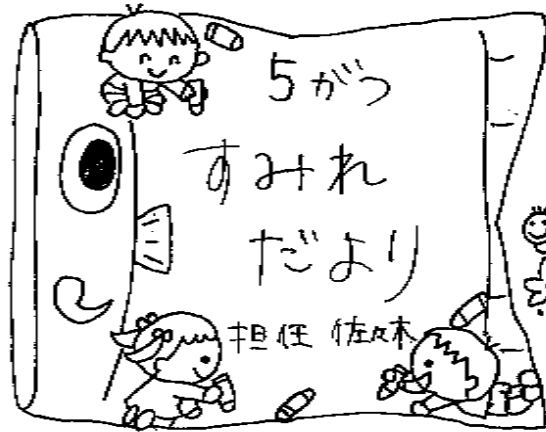 5がつ
すみれ
だより
担任 佐々木